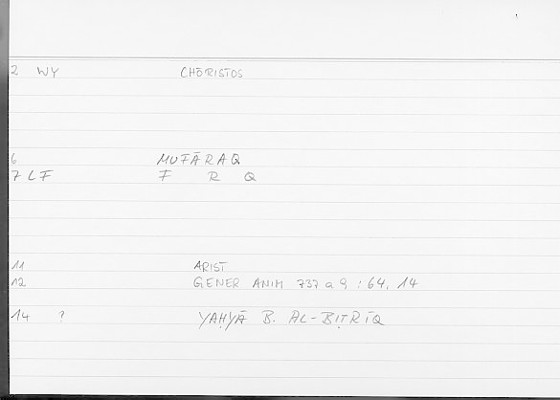 2 WY CHŌRISTOS
6 MUFĀRAQ
7 LF F R Q
11 ARIST
12 GENER ANIM 737 a 9 : 64, 14
14 ? YAḤYĀ B. AL-BIṬRĪQ